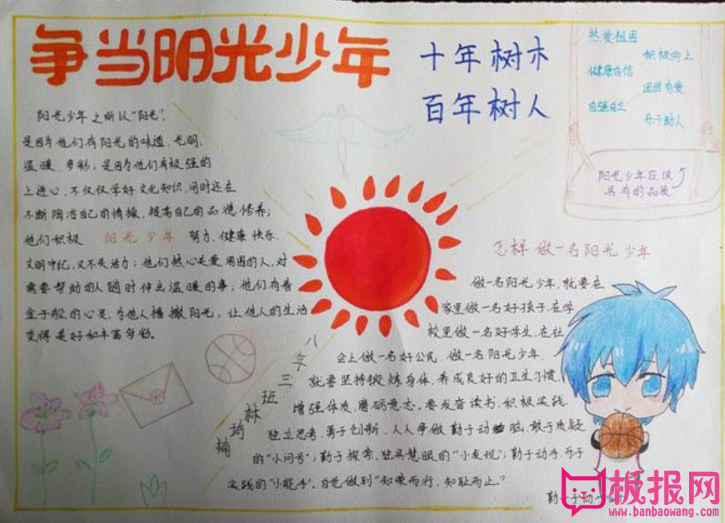 争当阳光少年
十年树木
百年树人
热爱祖国
积极向上
健康自信
团结友爱
自强自立
乐于助人
阳光少年应该
具有的品质
阳光少年之所以"阳光",
是因为他们有阳光的味道,光明、
温暖、多彩;是因为他们有极强的
上进心,不仅仅学好文化知识,同时还在
不断陶冶自己的情操,提高自己的品德修养;
他们积极 阳光少年 努力、健康快乐、
文明守纪,又不失活力;他们热心关爱周围的人,对
需要帮助的人随时伸出温暖的手;他们有善
金子般的心灵,为他人播撒阳光,让他人的生活
变得美好和丰富多彩。
怎样做一名阳光少年
做一名阳光少年,就要在
家里做一名好孩子,在学
校里做一名好学生,在社
会上做一名好公民,做一名阳光少年,
就要坚持锻炼身体,养成良好的卫生习惯,
增强体质,磨砺意志,要发奋读书,积极实践,
独立思考,勇于创新,人人争做勤于动脑、敢于质疑
的"小问号";勤于探索、独具慧眼的"小发现";勤于动手、乐于
实践的"小能手",自觉做到"知荣而行,知耻而止。"
八年三班林琦楠
勤于动
板报网
www.banbaowang.com